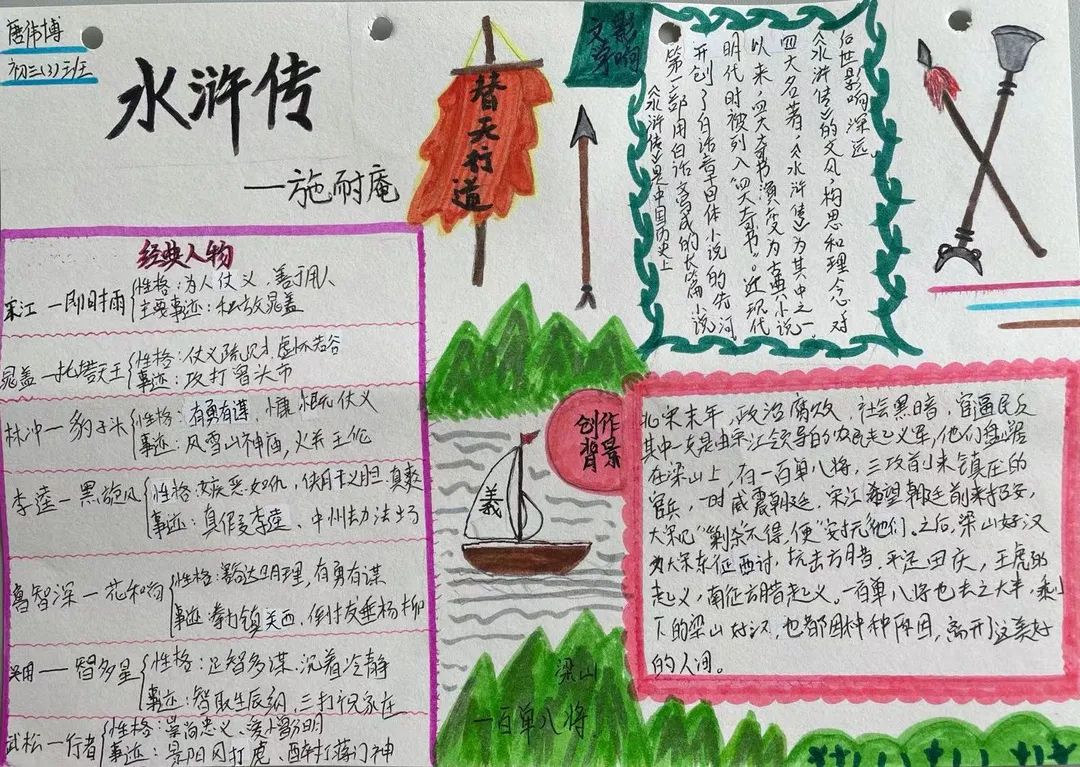 唐伟博
初三(3)班
水浒传
——施耐庵
替天行道
经典人物
宋江—及时雨
性格:为人仗义、善于用人
主要事迹:私放晁盖
晁盖—托塔天王
性格:仗义疏财、虚怀若谷
事迹:攻打曾头市
林冲—豹子头
性格:有勇有谋、慷慨仗义
事迹:风雪山神庙,火并王伦
李逵—黑旋风
性格:疾恶如仇,侠肝义胆、直爽
事迹:真假李逵、
鲁智深—花和尚
性格:豁达明理、有勇有谋
事迹:拳打镇关西、倒拔垂杨柳
吴用——智多星
性格:足智多谋、沉着冷静
事迹:智取生辰纲、三打祝家庄
武松—行者
性格:崇尚忠义、爱憎分明
事迹:景阳冈打虎、醉打蒋门神
文学影响
后世影响深远
《水浒传》的文风、构思和理念,对
四大名著,《水浒传》为其中之一
以来,四大奇书演变为古典小说
明代时被列入"四大奇书"。近现代
开创了白话章回体小说的先河
第一部用白话文写成的长篇小说
《水浒传》是中国历史上
创作背景
北宋末年,政治腐败,社会黑暗,官逼民反
其中一支是由宋江领导的农民起义军,他们盘踞
在梁山上,有一百单八将,三攻前来镇压的
官兵,一时威震朝廷,宋江希望朝廷前来招安,
大宋见"剿杀不得,便"安抚"他们。之后,梁山好汉
为大宋东征西讨,抗击方腊,平定田庆,王虎的
起义,南征方腊起义。一百单八将也去之大半,剩
下的梁山好汉,也都因种种原因,离开了这美好
的人间。
義
梁山
一百单八将